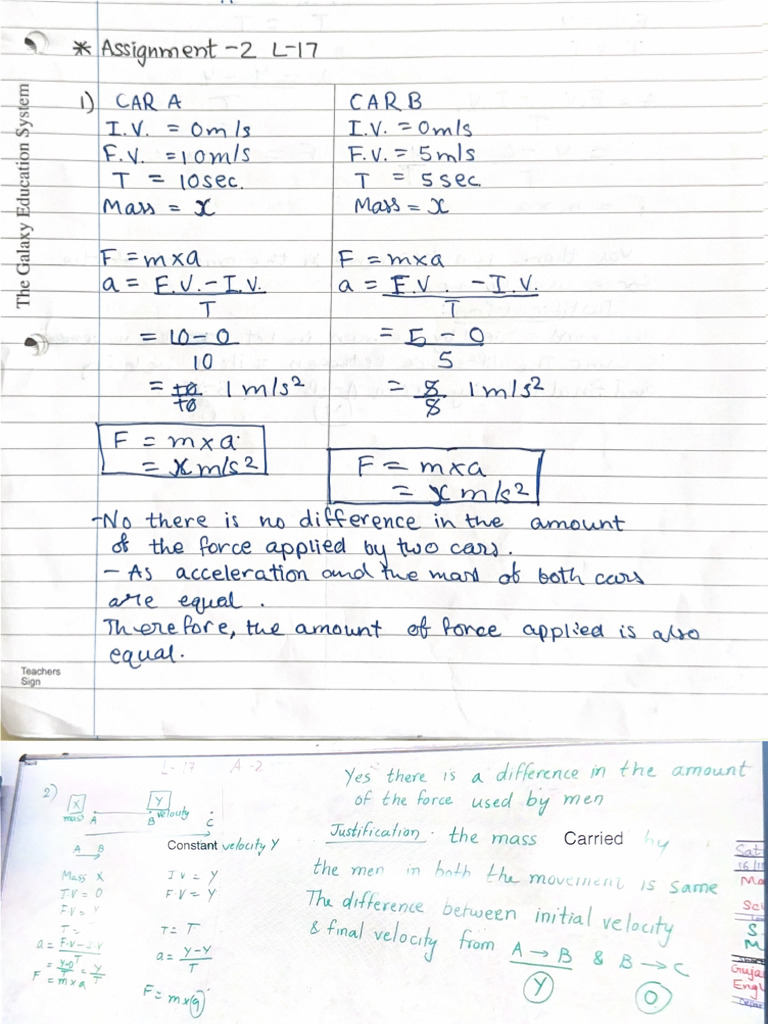 * Assignment -2 L-17
The Galaxy Education System
1) CAR A
I.V. = 0m/s
F.V. = 10m/s
T = 10sec.
Mass = x
F = mxa
a = F.V. - I.V.
T
= 10 - 0
10
= 10 1 m/s²
10
F = mxa
= x m/s²
CAR B
I.V. = 0m/s
F.V. = 5m/s
T = 5sec
Mass = x
F = mxa
a = F.V. - I.V.
T
= 5 - 0
5
= 5 1m/s²
5
F = mxa
= x m/s²
-No there is no difference in the amount
of the force applied by two cars.
- As acceleration and the mass of both cars
are equal.
Therefore, the amount of force applied is also
equal.
Teachers
Sign
L-17 A-2
2) X Y
mass A B velocity C
A B
Mass X
I.V = 0
F.V = Y
T =
a = F.V - I.V
T
= Y-0 = Y
T T
F = mxa
Constant velocity Y
I V = Y
F V = Y
T = T
a = Y-Y
T
F = mx(a)
Yes there is a difference in the amount
of the force used by men
Justification. the mass Carried by
the men in both the movement is same
The difference between initial velocity
& final velocity from A → B & B → C
Y O
Sat
16/11
Ma
Sci
S
M
Gujar
Engl